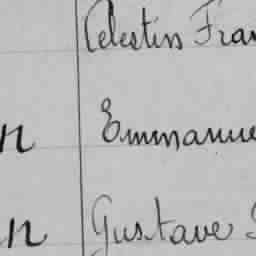 Célestin Fran
n Emmanue
n Gustave